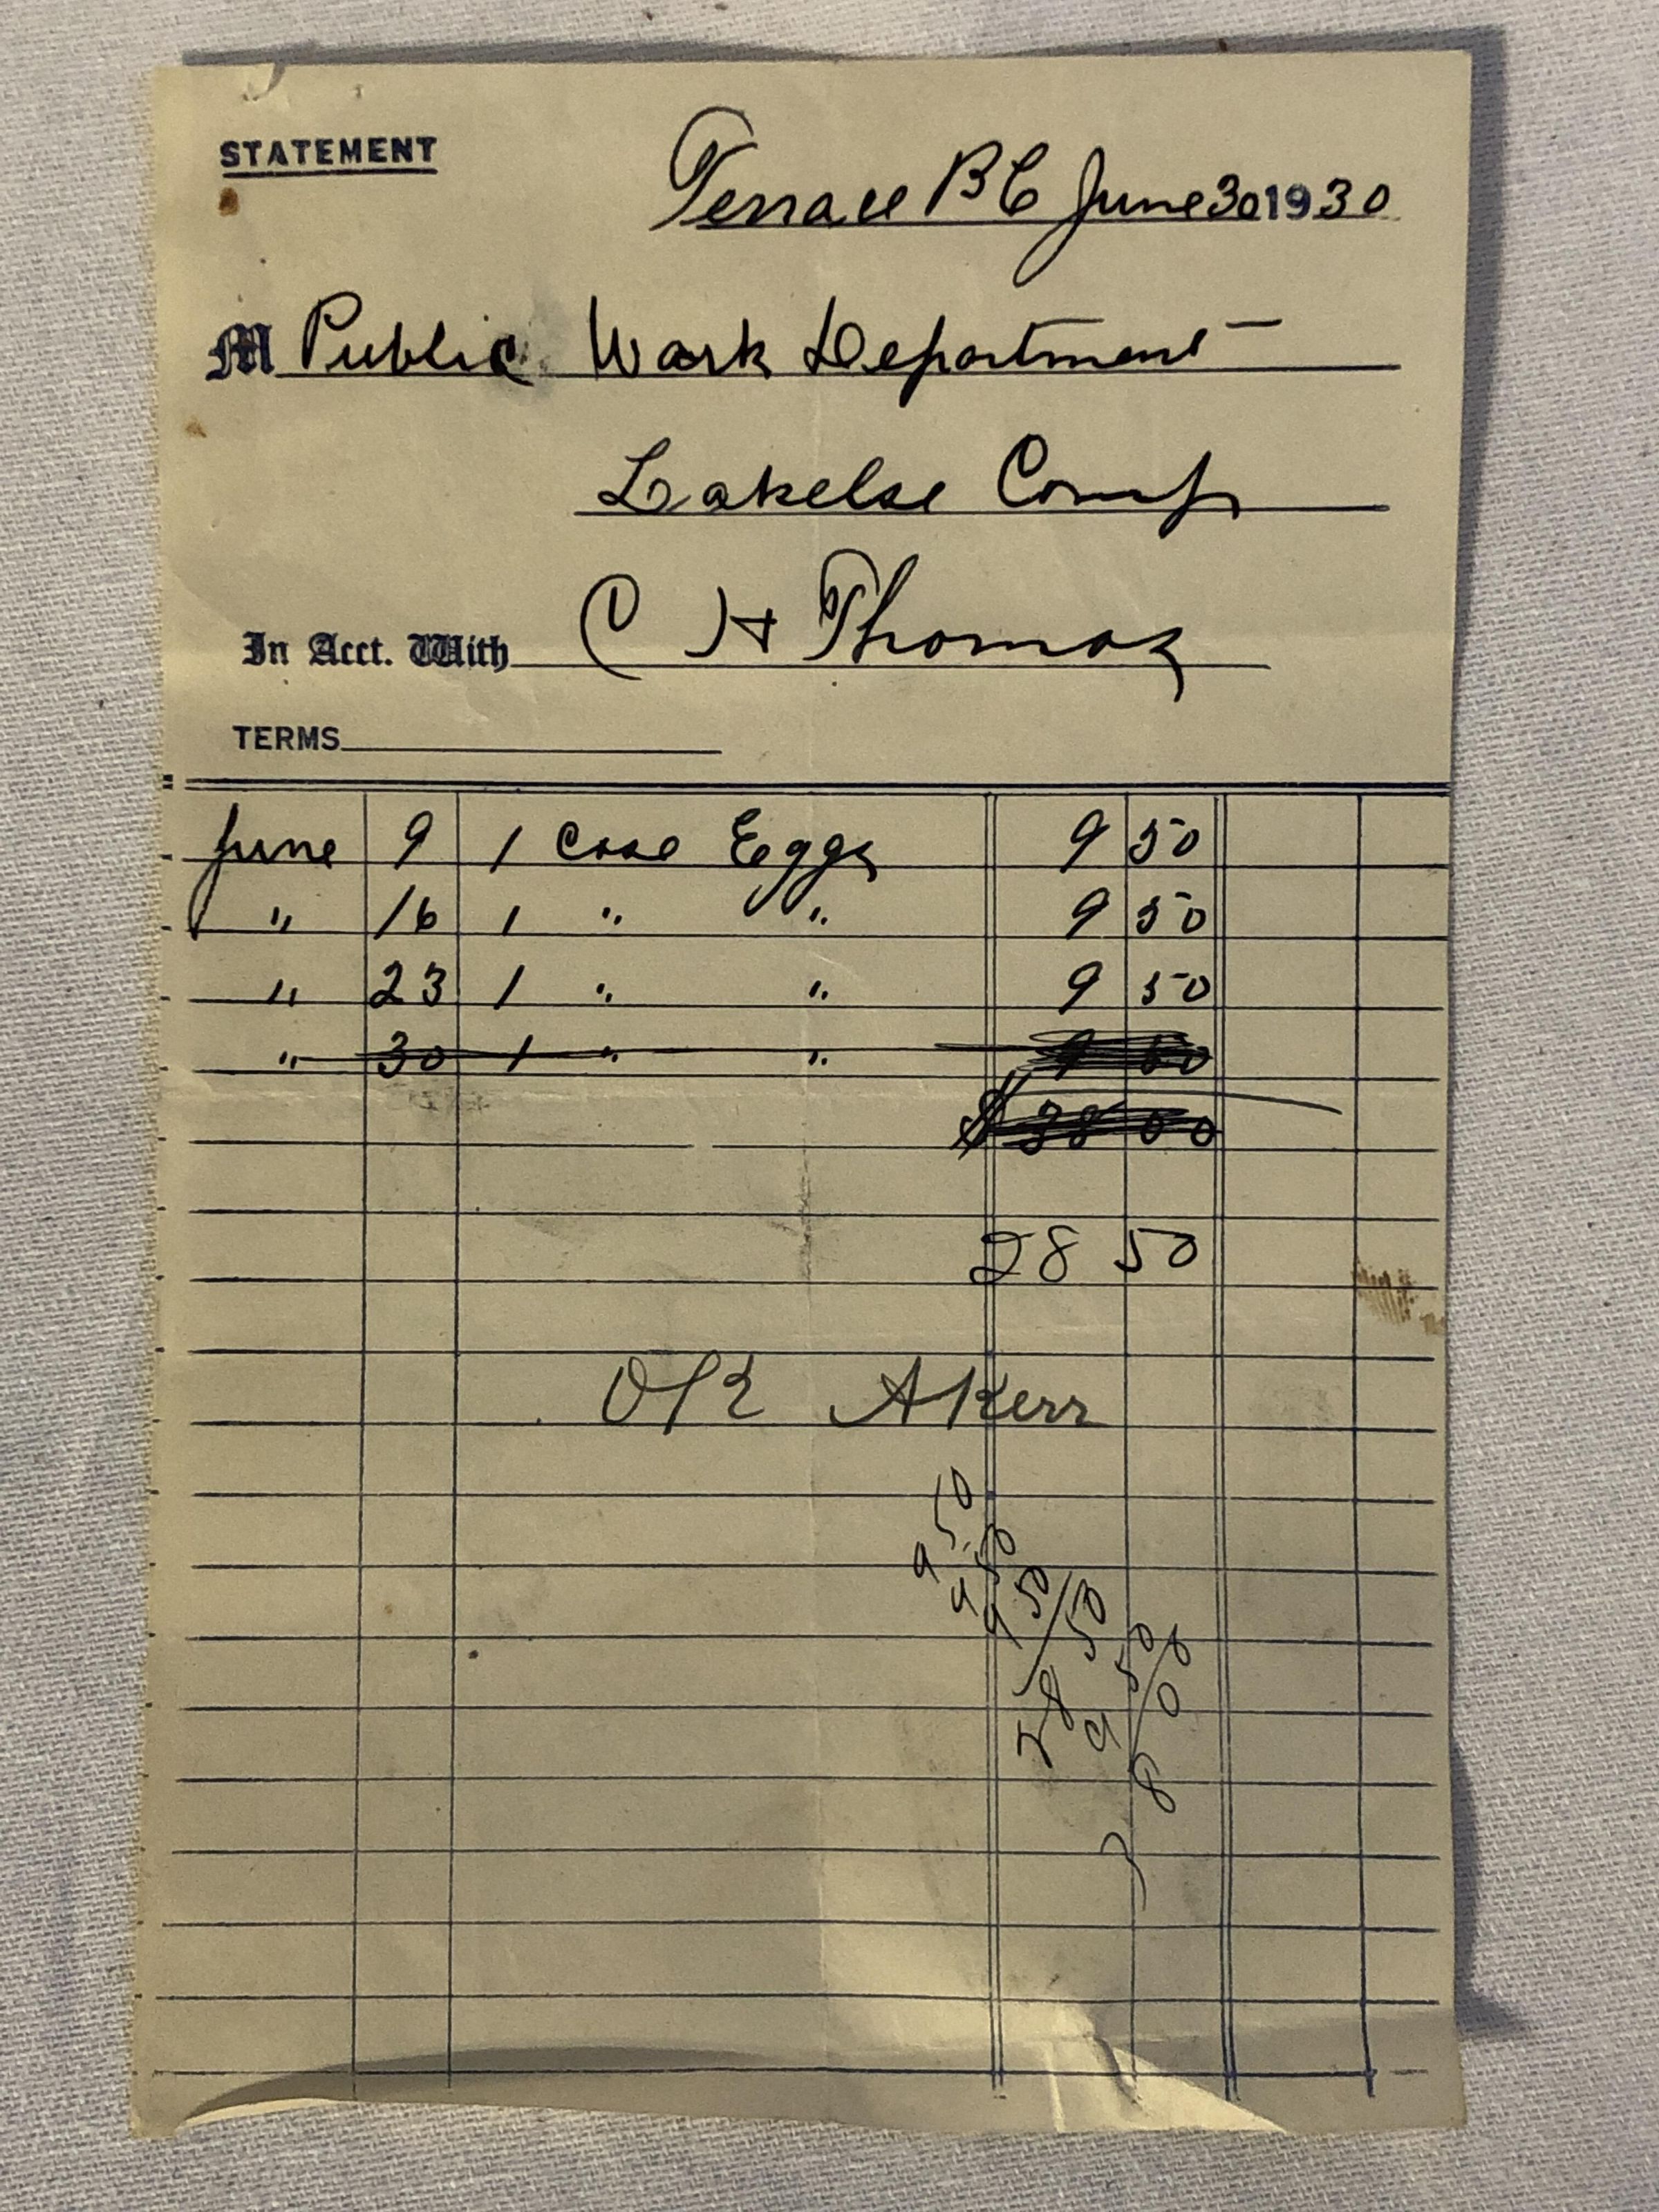 STATEMENT
Terrace BC June 30 1930
M Public Work Department
Lakelse Camp
In Acct. With C H Thomas
TERMS
June 9 1 Case Eggs 9 50
" 16 1 " " 9 50
" 23 1 " " 9 50
" 30 1 " " 9 50
$ 38 00
28 50
O/K AKerr
9 50
9 50
9 50
28 50
9 50
38 00